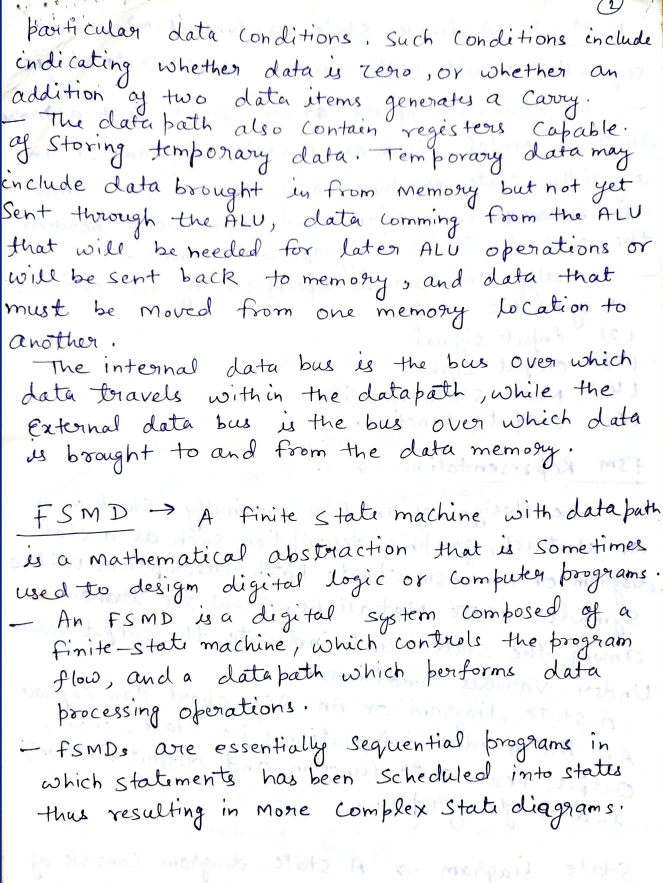 2
particular data conditions. Such Conditions include
indicating whether data is zero, or whether an
addition of two data items generates a Carry.
— The data path also Contain registers Capable.
of Storing temporary data. Temporary data may
include data brought in from memory but not yet
Sent through the ALU, data comming from the ALU
that will be needed for later ALU operations or
will be sent back to memory, and data that
must be moved from one memory location to
another.
The internal data bus is the bus over which
data travels within the datapath, while the
External data bus is the bus over which data
is brought to and from the data memory.
FSMD → A finite state machine with datapath
is a mathematical abstraction that is Sometimes
used to design digital logic or Computer programs.
— An FSMD is a digital system Composed of a
finite-state machine, which controls the program
flow, and a datapath which performs data
processing operations.
— FSMDs are essentially Sequential programs in
which statements has been Scheduled into states
thus resulting in more Complex State diagrams.